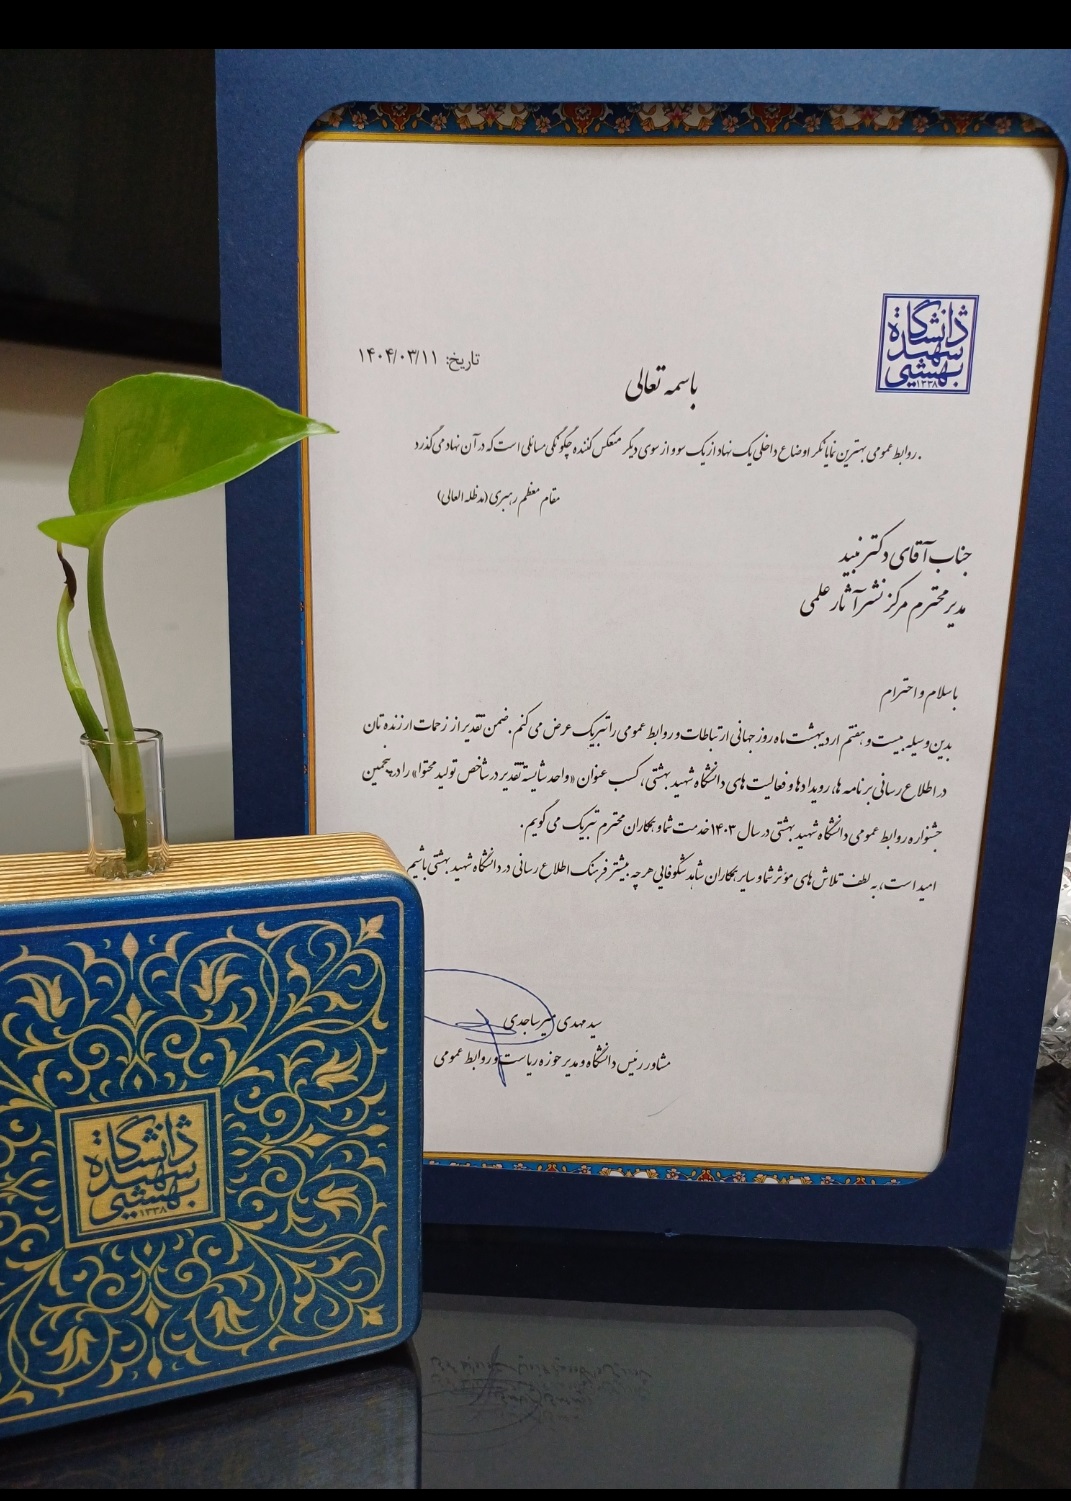 دانشگاه
شهید
بهشتی
۱۳۳۸
تاریخ: ۱۴۰۴/۰۳/۱۱
باسمه تعالی
روابط عمومی بهترین نمایانگر اوضاع داخلی یک نهاد از یک سو و از سوی دیگر منعکس کننده چگونگی مسائلی است که در آن نهاد می گذرد.
مقام معظم رهبری (مدظله العالی)
جناب آقای دکتر نبید
مدیر محترم مرکز نشر آثار علمی
با سلام و احترام
بدین وسیله بیست و هفتم اردیبهشت ماه روز جهانی ارتباطات و روابط عمومی را تبریک عرض می کنم. ضمن تقدیر از زحمات ارزنده تان
در اطلاع رسانی برنامه ها، رویدادها و فعالیت های دانشگاه شهید بهشتی، کسب عنوان «واحد شایسته تقدیر در شاخص تولید محتوا» را در پنجمین
جشنواره روابط عمومی دانشگاه شهید بهشتی در سال ۱۴۰۳ خدمت شما و همکاران محترم تبریک می گویم.
امید است، به لطف تلاش های مؤثر شما و سایر همکاران شاهد شکوفایی هر چه بیشتر فرهنگ اطلاع رسانی در دانشگاه شهید بهشتی باشیم.
سید مهدی میرساجدی
مشاور رئیس دانشگاه و مدیر حوزه ریاست و روابط عمومی
دانشگاه
شهید
بهشتی
۱۳۳۸